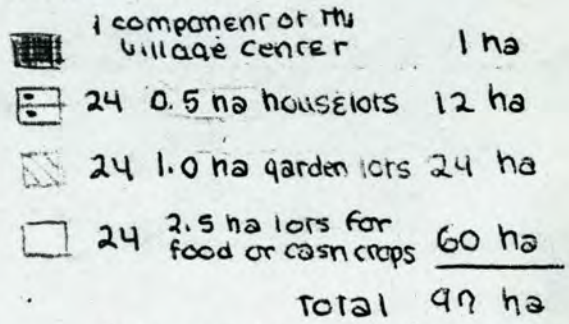 1 component of the
village center 1 ha
24 0.5 ha houselots 12 ha
24 1.0 ha garden lots 24 ha
24 2.5 ha lots for
food or cash crops 60 ha
Total 97 ha